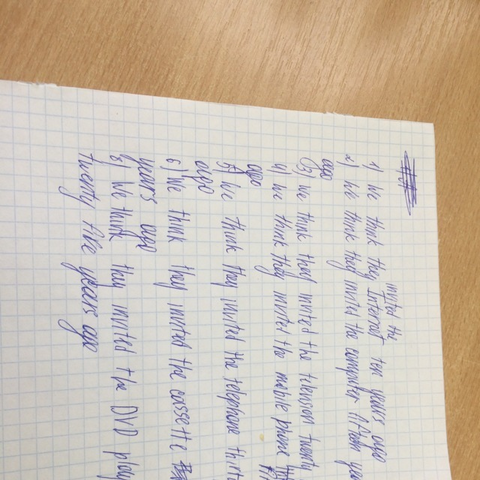 invited the
1) We think they Internet ten years ago
2) We think they invited the computer
ago
3) We think they invited the television twenty
4) We think they invited the mobile phone
ago
5) We think they invited the telephone
ago
6) We think they invited the cassette
years ago
8) We think they invited the DVD play
twenty five years ago